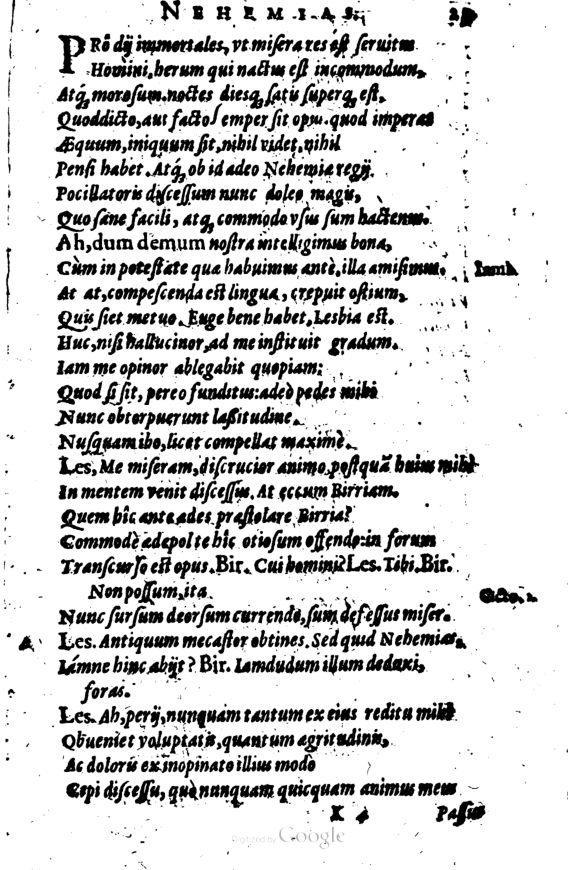 NEHEMIAS.
PRô dij immortales, vt misera res est seruitus
Homini, herum qui nactus est incommodum,
Atq́; morosum. noctes diesq́; satis superq́; est,
Quoddicto, aut facto semper sit opus. quod imperas
Æquum, iniquum sit, nihil videt, nihil
Pensi habet. Atq́; ob id adeo Nehemiæ regij
Pocillatoris discessum nunc doleo magis,
Quo sane facili, atq́; commodo vsus sum hactenus.
Ah, dum demum nostra intelligimus bona,
Cùm in potestate quæ habuimus antè, illa amisimus.
At at, compescenda est lingua, crepuit ostium,
Quis siet metuo. Euge bene habet, Lesbia est.
Huc, nisi hallucinor, ad me instituit gradum.
Iam me opinor ablegabit quopiam:
Quod si sit, pereo funditus: adeò pedes mihi
Nunc obtorpuerunt lassitudine.
Nusquam ibo, licet compellat maximè.
Les, Me miseram, discrucior animo, postquã huius mihi
In mentem venit discessus. At eccum Birriam.
Quem hîc ante ædes præstolare Birria?
Commodè ædepol te hîc otiosum offendo: in forum
Transcurso est opus. Bir. Cui homini? Les. Tibi. Bir.
Non possum, ita
Nunc sursum deorsum currendo, sum defessus miser.
Les. Antiquum mecastor obtines. Sed quid Nehemias,
Iámne hinc abijt? Bir. Iamdudum illum deduxi,
foras.
Les. Ah, perij, nunquam tantum ex eius reditu mihi
Obueniet voluptatis, quantum ægritudinis,
Ac doloris ex inopinato illius modò
Cepi discessu, quò nunquam quicquam animus meus
X 4 Passus
Digitized by Google